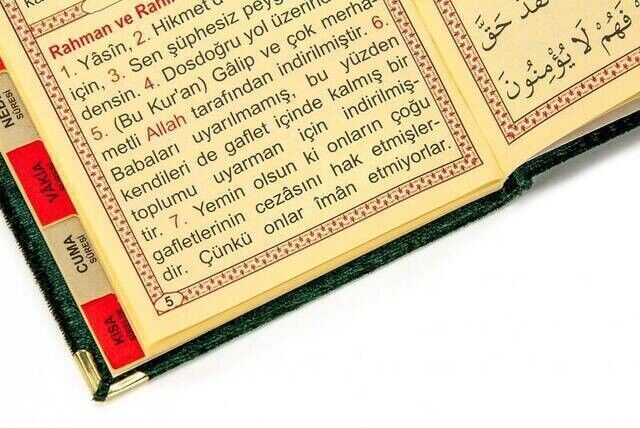 Rahman ve
1. Yâsîn, 2. Hikmet
için, 3. Sen şüphesiz
densin. 4. Dosdoğru yol üzerin
5. (Bu Kur'an) Gâlip ve çok merha-
metli Allah tarafından indirilmiştir. 6.
Babaları uyarılmamış, bu yüzden
kendileri de gaflet içinde kalmış bir
toplumu uyarman için indirilmiş-
tir. 7. Yemin olsun ki onların çoğu
gafletlerinin cezâsını hak etmişler-
dir. Çünkü onlar îmân etmiyorlar.
5
حَقَّ
فَهُمْ لَا يُؤْمِنُونَ
SURESİ
VAKIA
CUMA
SÛRESİ
KISA